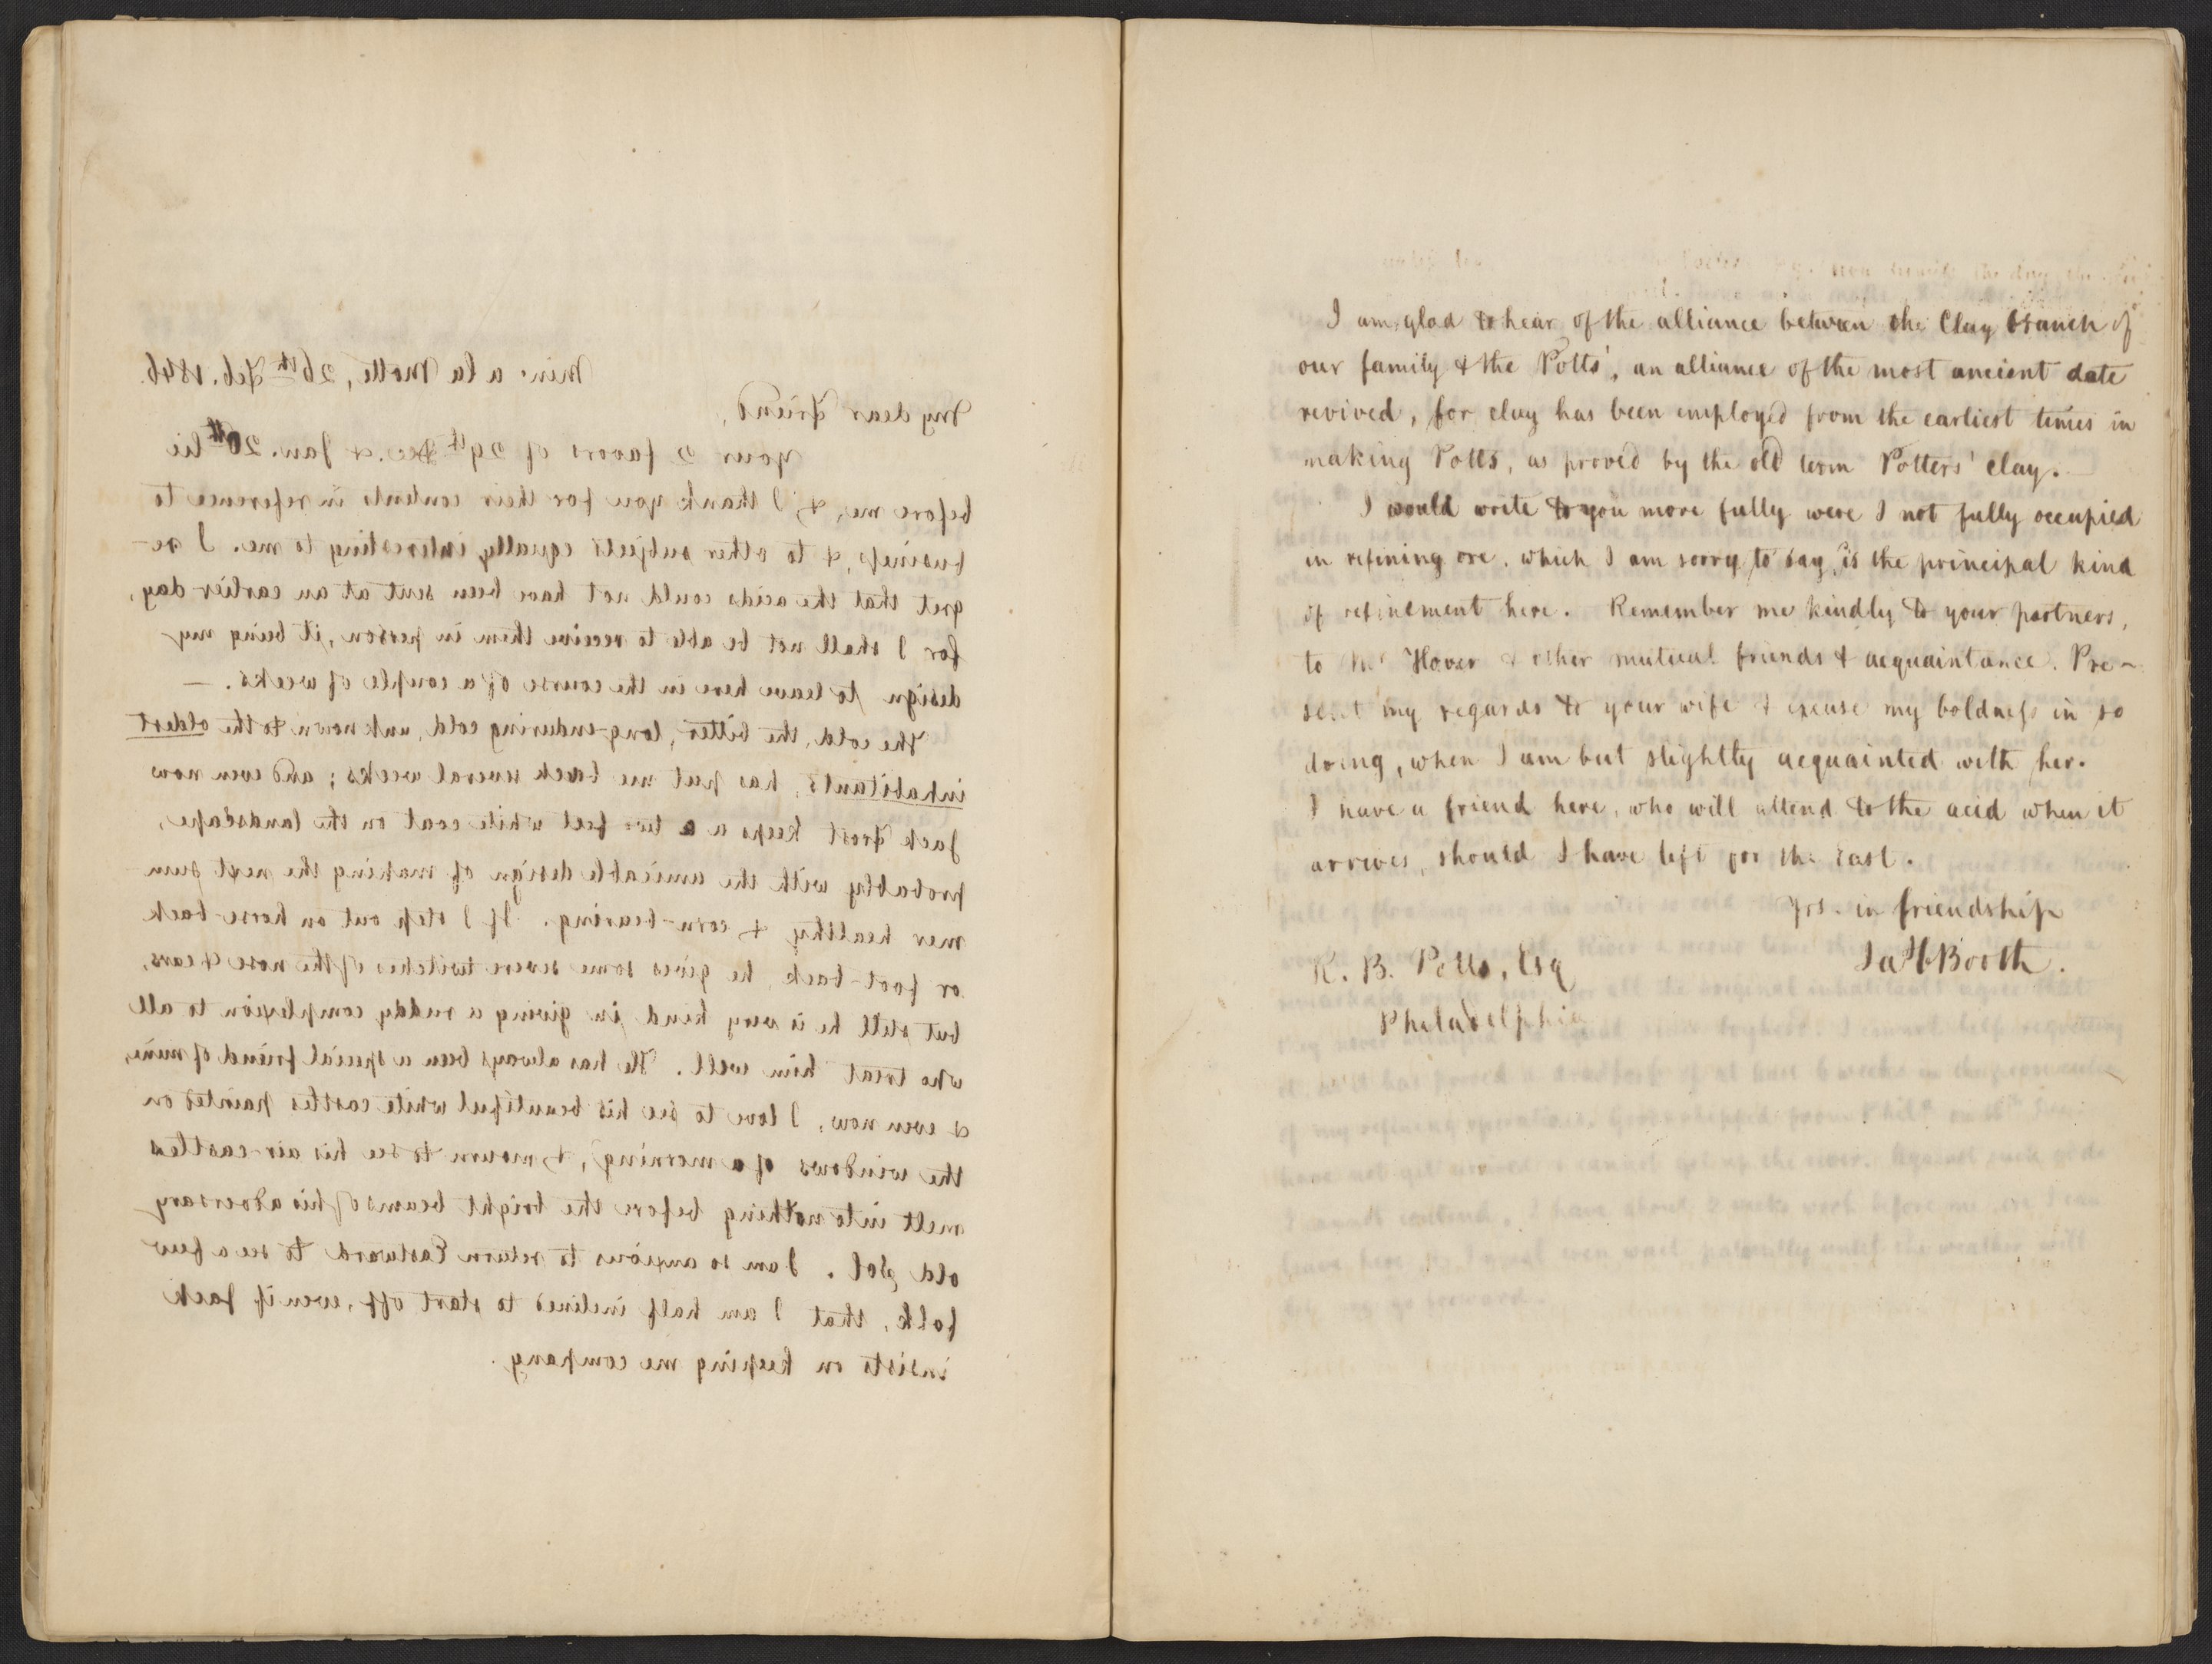 Mine a la Motte, 26th Feb. 1846.
My dear Friend,
Your 2 favors of 29th Dec. & Jan. 20th lie
before me, & I thank you for their contents in reference to
business, & to other subjects equally interesting to me. I re-
gret that the acids could not have been sent at an earlier day,
for I shall not be able to receive them in person, it being my
design to leave here in the course of a couple of weeks. —
The cold, the bitter, long-enduring cold, unknown to the oldest
inhabitants, has put me back several weeks; and even now
Jack Frost keeps a two feet white coat on the landscape,
probably with the amicable design of making the next sum
mer healthy & corn-bearing. If I step out on horse-back
or foot-back, he gives some severe twitches of the nose & ears,
but still he is very kind in giving a ruddy complexion to all
who treat him well. He has always been a special friend of mine,
& even now, I love to see his beautiful white castles painted on
the windows of a morning, & mourn to see his air-castles
melt into nothing before the bright beams of his adversary
old Sol. I am so anxious to return Eastward to see a few
folk, that I am half inclined to start off, even if Jack
insists on keeping me company.
I am glad to hear of the alliance between the Clay branch of
our family & the Potts', an alliance of the most ancient date
revived, for clay has been employed from the earliest times in
making Potts, as proved by the old term Potters' clay. —
I would write to you more fully were I not fully occupied
in refining ore, which I am sorry to say, is the principal kind
of refinement here. Remember me kindly to your partners,
to Mr Hover & other mutual friends & acquaintance. Pre-
sent my regards to your wife & excuse my boldness in so
doing, when I am but slightly acquainted with her.
I have a friend here, who will attend to the acid when it
arrives, should I have left for the East.
Yrs. in friendship
Jas H Booth.
R. B. Potts, Esq
Philadelphia